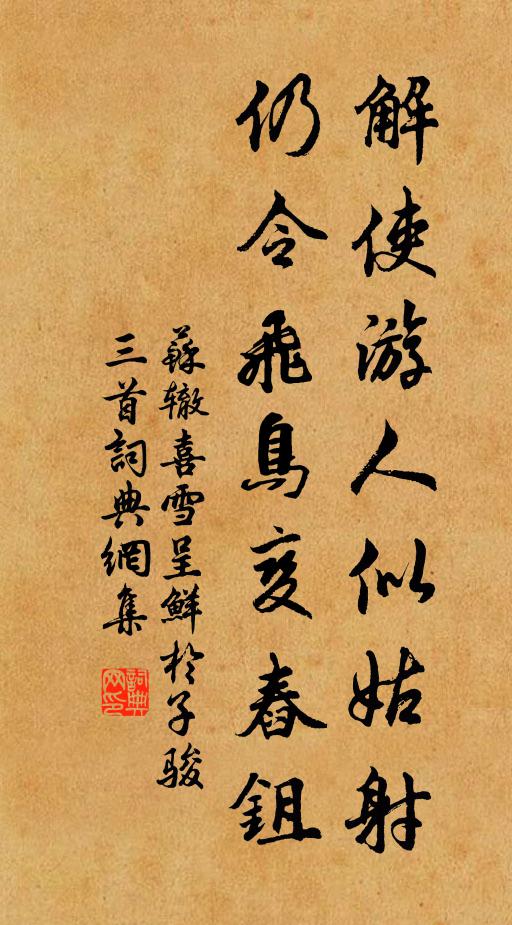 解使游人似姑射
仍令飛鳥变舂鉏
蘇辙喜雪呈鮮於子駿
三首詞典網集
詞典网印